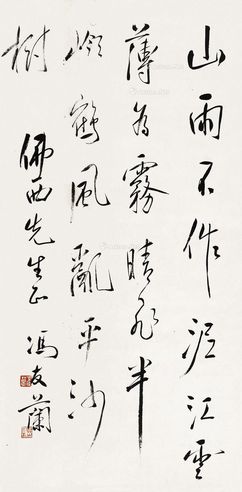 山雨不作泥江雲
薄為霧晴飛半
嶺鶴風亂平沙
樹
佛西先生正
馮友蘭